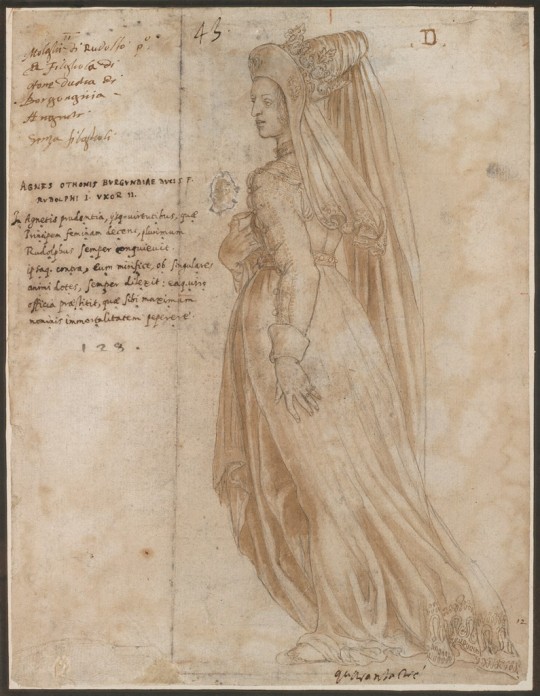 43
D
Moglie di Rudolfo pº
II
et Figliola di
Otone Duca de
Borgungnia
Angnete
senza figlioli
AGNES OTHONIS BVRGVNDIAE DVCIS F.
RVDOLPHI I. VXOR II.
In Agnetis prudentia, ijsq; virtutibus, quę
Principem feminam decent, plurimum
Rudolphus semper conquievit.
ipsaq; contra, eum mirificè, ob singulares
animi dotes, semper dilexit: eaq; viro
officia pręstitit, quę sibi maximam
nominis immortalitatem peperere
123.
12